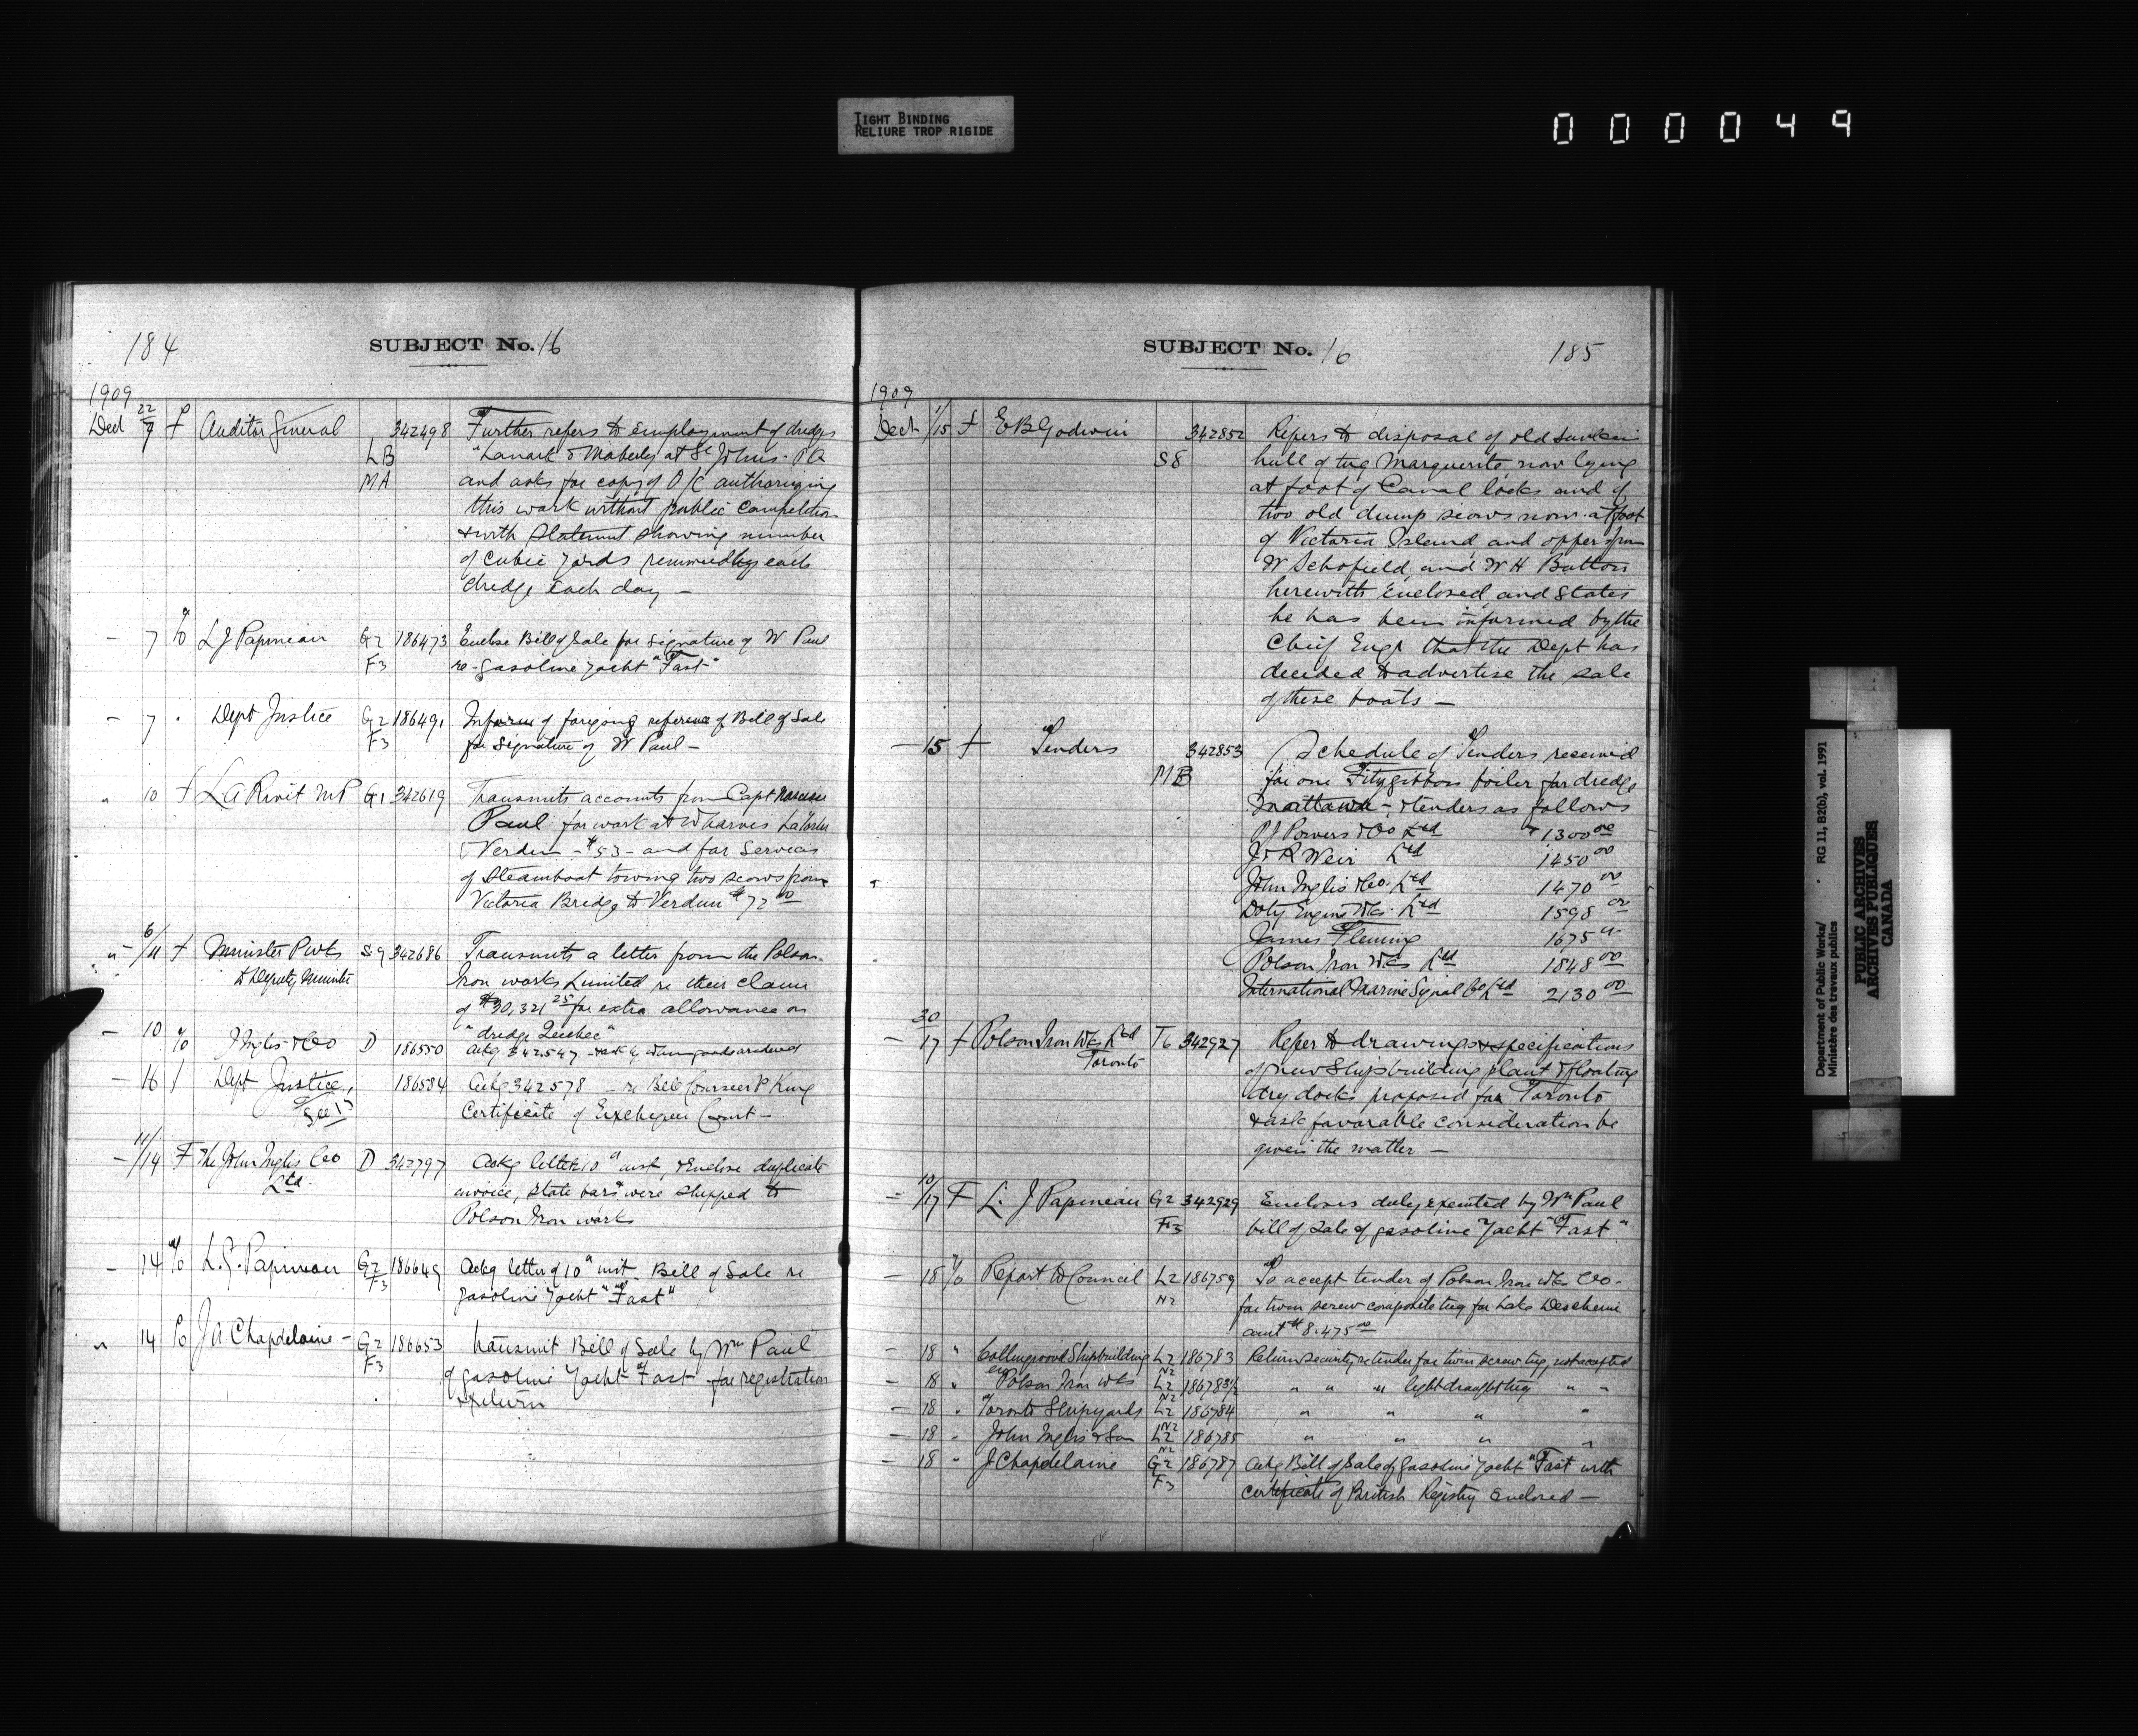 TIGHT BINDING
RELIURE TROP RIGIDE
000049
184
SUBJECT No. 16
1909
Dec 22/7 F Auditor General 342498 Further refers to employment of dredges
LB "Lanark & Maberly at St Johns. P.Q
MA and asks for copy of O/C authorizing
this work without public competition
& with Statement showing number
of cubic yards removed by each
dredge each day —
— 7 to L J Papineau G2 186473 Enclose Bill of Sale for signature of W Paul
F3 re-gasoline yacht "Fast"
— 7 " Dept Justice G2 186491 Inform of foregoing reference of Bill of Sale
F3 for signature of W Paul —
" 10 f L A Rivet MP G1 342619 Transmits accounts from Capt
Paul for work at Wharves
Verdun - $53 - and for Services
of Steamboat towing two scows from
Victoria Bridge to Verdun $72 00
" 6/11 f Minister P Wks S9 342686 Transmits a letter from the Polson
to Deputy Minister Iron works Limited re their claim
of $30,321 25 for extra allowance on
"dredge Quebec"
— 10 to J Inglis & Co D 186550 Ackg 342547 - & ask by whom goods ordered
— 16 / Dept Justice 186584 Ackg 342578 — re Bell Courneer P King
See 17 Certificate of Exchequer Court —
— 11/14 F The John Inglis Co D 342797 Ackg letter 10" inst & Enclose duplicate
Ltd. invoice, state bars were shipped to
Polson Iron works
— 14 to L. J. Papineau G2 186649 Ackg letter of 10" inst. Bill of Sale re
F3 gasoline yacht "Fast"
" 14 to J A Chapdelaine — G2 186653 transmit Bill of Sale by Wm Paul
F3 of gasoline yacht Fast for registration
& return
SUBJECT No. 16
185
1909
Dec 1/15 f E B Godwin 342852 Refers to disposal of old sunken
S8 hull of tug Marguerite, now lying
at foot of Canal locks and of
two old dump scows now at foot
of Victoria Island, and offer from
W Schofield, and W H Button
herewith Enclosed, and States
he has been informed by the
Chief Engr that the Dept has
decided to advertise the sale
of these boats —
— 15 f Tenders 342853 Schedule of Tenders received
MB for one Fitzgibbon boiler for dredge
Mattawa — & tenders as follows
P J Powers & Co Ltd $1300 00
J & R Weir Ltd 1450 00
John Inglis & Co. Ltd 1470 00
Doty Engine Wks. Ltd 1598 00
James Fleming 1675 "
Polson Iron Wks Ltd 1848 00
International Marine Signal Co Ltd 2130 00
— 30/17 f Polson Iron Wks Ltd T6 342927 Refer to drawings & specifications
Toronto of new Shipbuilding plant & floating
dry docks proposed for Toronto
& ask favorable consideration be
given the matter —
— 10/17 F L. J Papineau G2 342929 Encloses duly executed by Wm Paul
F3 bill of Sale of gasoline yacht "Fast"
— 18 to Report to Council L2 186759 To accept tender of Polson Iron Wks Co.
N2 for twin screw composite tug for Lake Deschenes
amt $8.475 00
— 18 " Collingwood Shipbuilding L2 186783 Return security re tender for twin screw tug, not accepted
— 18 " Polson Iron Wks L2 186783½ " " " light draught tug " "
— 18 " Toronto Shipyards L2 186784 " " " "
— 18 " John Inglis & Son L2 186785 " " " "
— 18 " J Chapdelaine G2 186787 Ackg Bill of Sale of gasoline yacht "Fast with
F3 certificate of British Registry Enclosed —
Department of Public Works/ RG 11, B2(b), vol. 1991
Ministère des travaux publics
PUBLIC ARCHIVES
ARCHIVES PUBLIQUES
CANADA